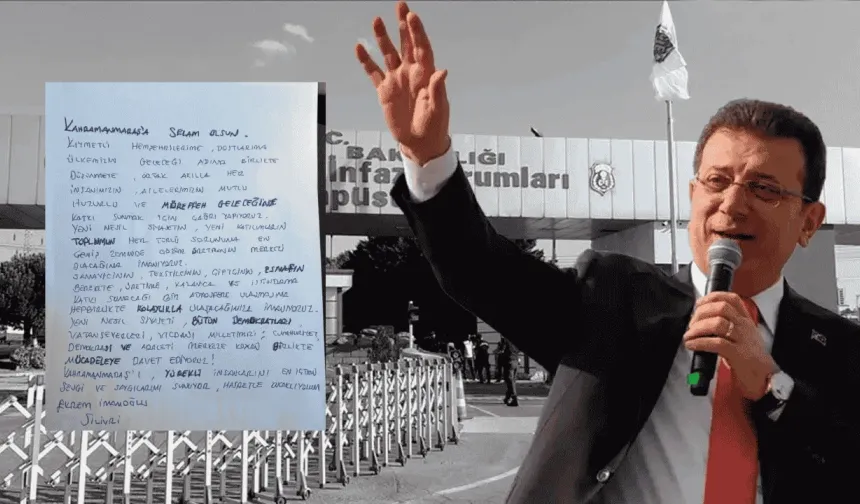 KAHRAMANMARAŞ'A SELAM OLSUN.
KIYMETLİ HEMŞEHRİLERİME, DOSTLARIMA
ÜLKEMİZİN GELECEĞİ ADINA BİRLİKTE
DÜŞÜNMEYE, ORTAK AKILLA HER
İNSANIMIZIN, AİLELERİMİZİN MUTLU
HUZURLU VE MÜREFFEH GELECEĞİNE
KATKI SUNMAK İÇİN ÇAĞRI YAPIYORUZ.
YENİ NESİL SİYASETİN, YENİ KATILIMLARIN
TOPLUMUN HER TÜRLÜ SORUNUNA EN
GENİŞ ZEMİNDE ÇÖZÜM ÜRETMENİN MERKEZİ
OLACAĞINA İNANIYORUZ.
SANAYİCİNİN, TEKSTİLCİNİN, ÇİFTÇİNİN, ESNAFIN
BEREKETE, ÜRETİME, KALKINMA VE İSTİHDAMA
KATKI SUNACAĞI BİR ATMOSFERE ULAŞMAYA
HEPBİRLİKTE KOLAYLIKLA ULAŞACAĞIMIZA İNANIYORUZ.
YENİ NESİL SİYASETİ, BÜTÜN DEMOKRATLARI,
VATANSEVERLERİ, VİCDANI MİLLETİMİZİ, CUMHURİYET,
DEMOKRASİ VE ADALETİ MERKEZE KOYAN BİRLİKTE
MÜCADELEYE DAVET EDİYORUZ!
KAHRAMANMARAŞ'I, YÜREKLİ İNSANLARINI EN İÇTEN
SEVGİ VE SAYGILARIMI SUNUYOR, HASRETLE KUCAKLIYORUM
EKREM İMAMOĞLU
SİLİVRİ
T.C.
BAKANLIĞI
İnfaz Kurumları